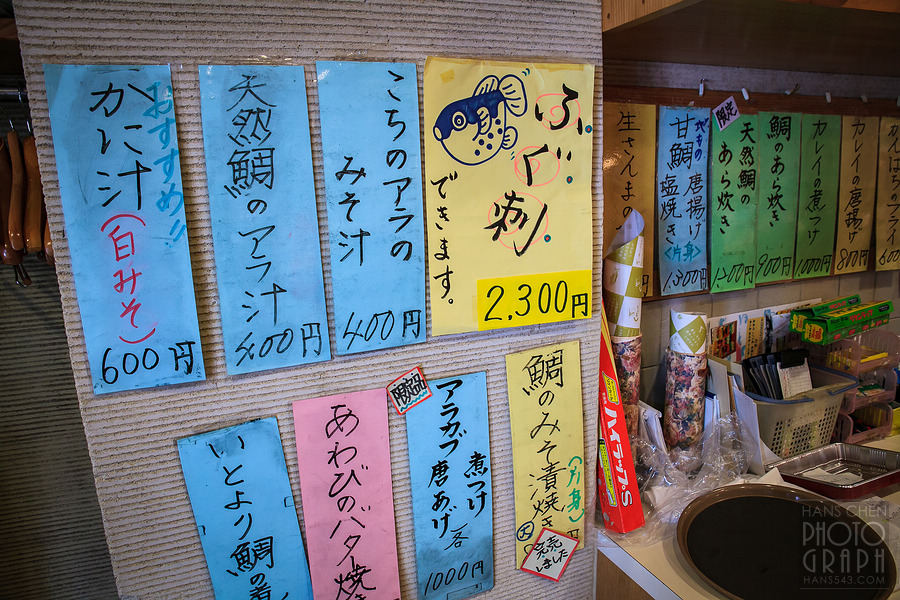 ふぐ刺
できます。
2,300円
こちのアラの
みそ汁
400円
天然鯛のアラ汁
400円
おすすめ!!
かに汁
(白みそ)
600円
鯛のみそ漬焼き
(片身)
完売
しました
限定品
アラカブ
煮つけ
唐あげ
各
1000円
あわびのバター焼き
いとより鯛の煮
かんぱちのアラフライ
600円
カレイの唐揚げ
800円
カレイの煮つけ
1000円
鯛のあら炊き
900円
限定
天然鯛の
あら炊き
1,200円
甘鯛の唐揚げ
塩焼き
(片身)
1,300円
生さんま
ハイラップ。S
HANS CHEN
PHOTO
GRAPH
HANS543.COM